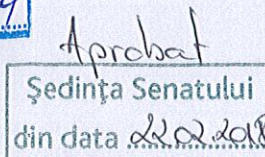 Aprobat
Ședința Senatului
din data 22.02.2018